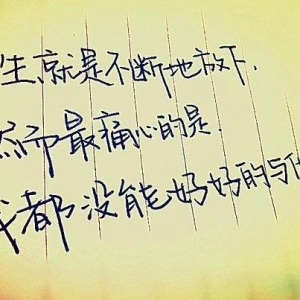 生就是不断地放下.
然而最痛心的是.
我都没能好好的与